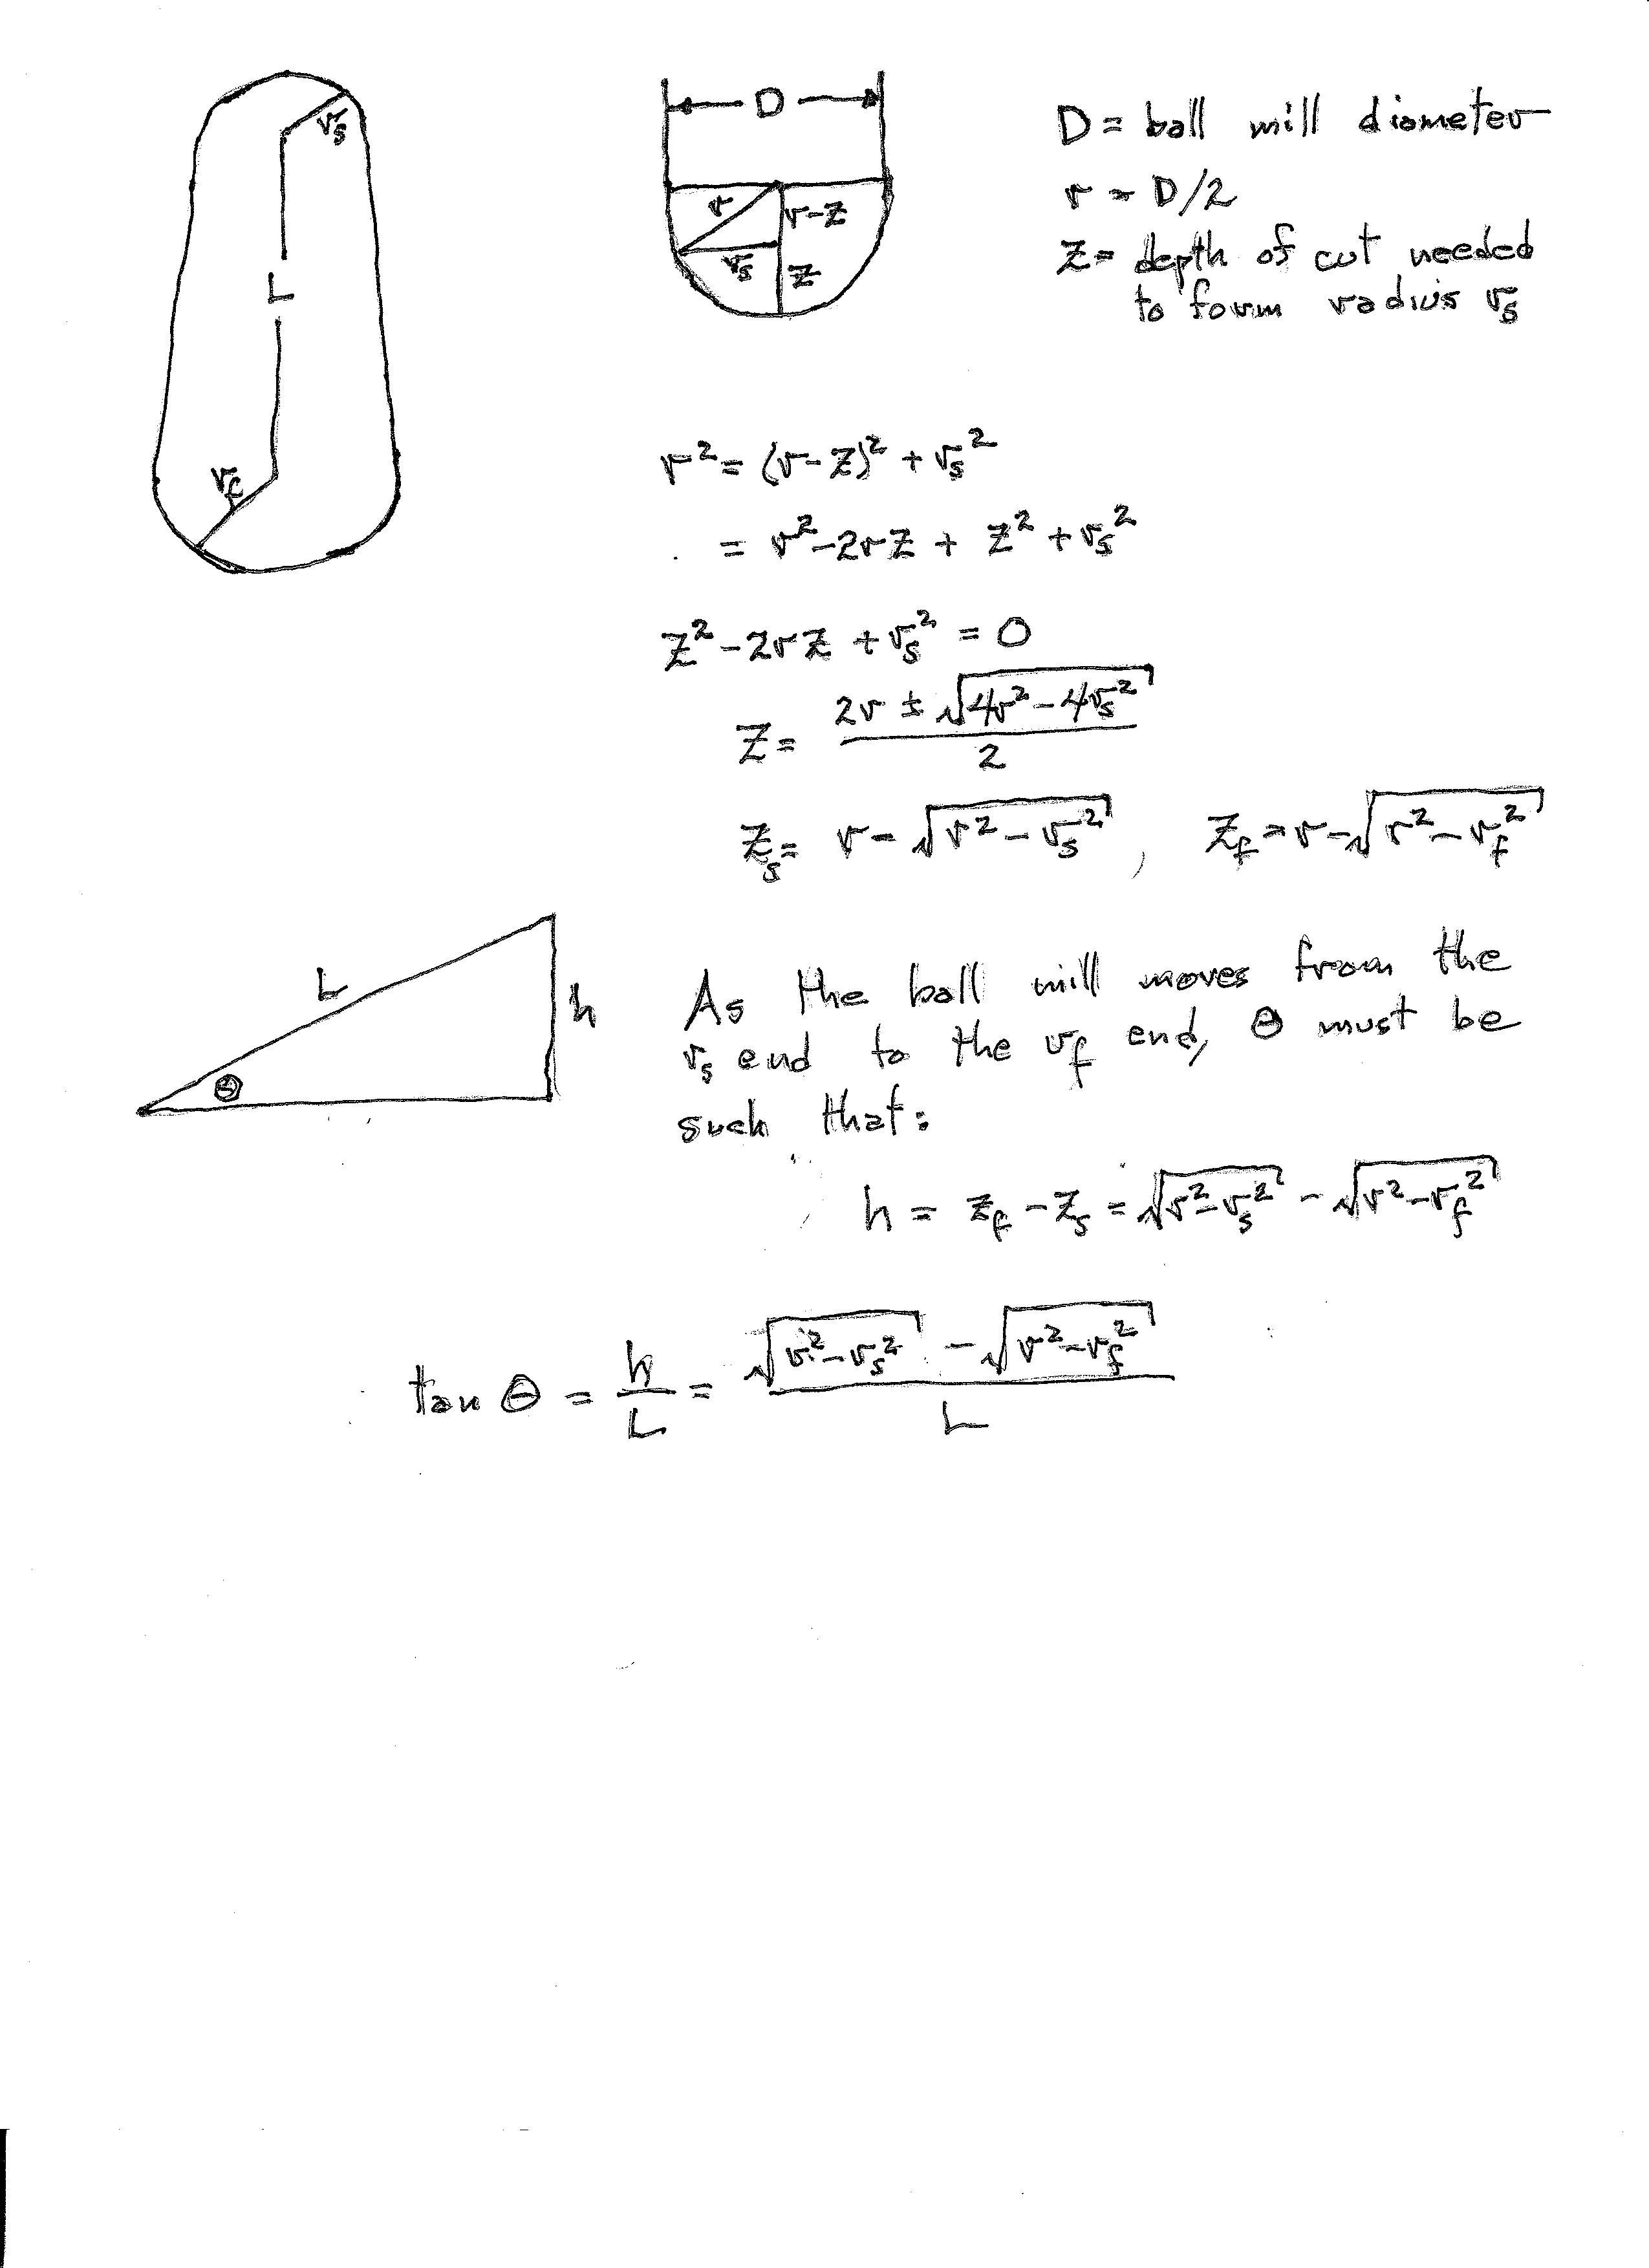 r_s
L
r_f
D
r
r-z
r_s
z
D = ball mill diameter
r = D/2
z = depth of cut needed
to form radius r_s
r² = (r-z)² + r_s²
= r² - 2rz + z² + r_s²
z² - 2rz + r_s² = 0
z = (2r ± √(4r² - 4r_s²)) / 2
z_s = r - √(r² - r_s²) , z_f = r - √(r² - r_f²)
L
h
θ
As the ball mill moves from the
r_s end to the r_f end, θ must be
such that:
h = z_f - z_s = √(r² - r_s²) - √(r² - r_f²)
tan θ = h/L = (√(r² - r_s²) - √(r² - r_f²)) / L